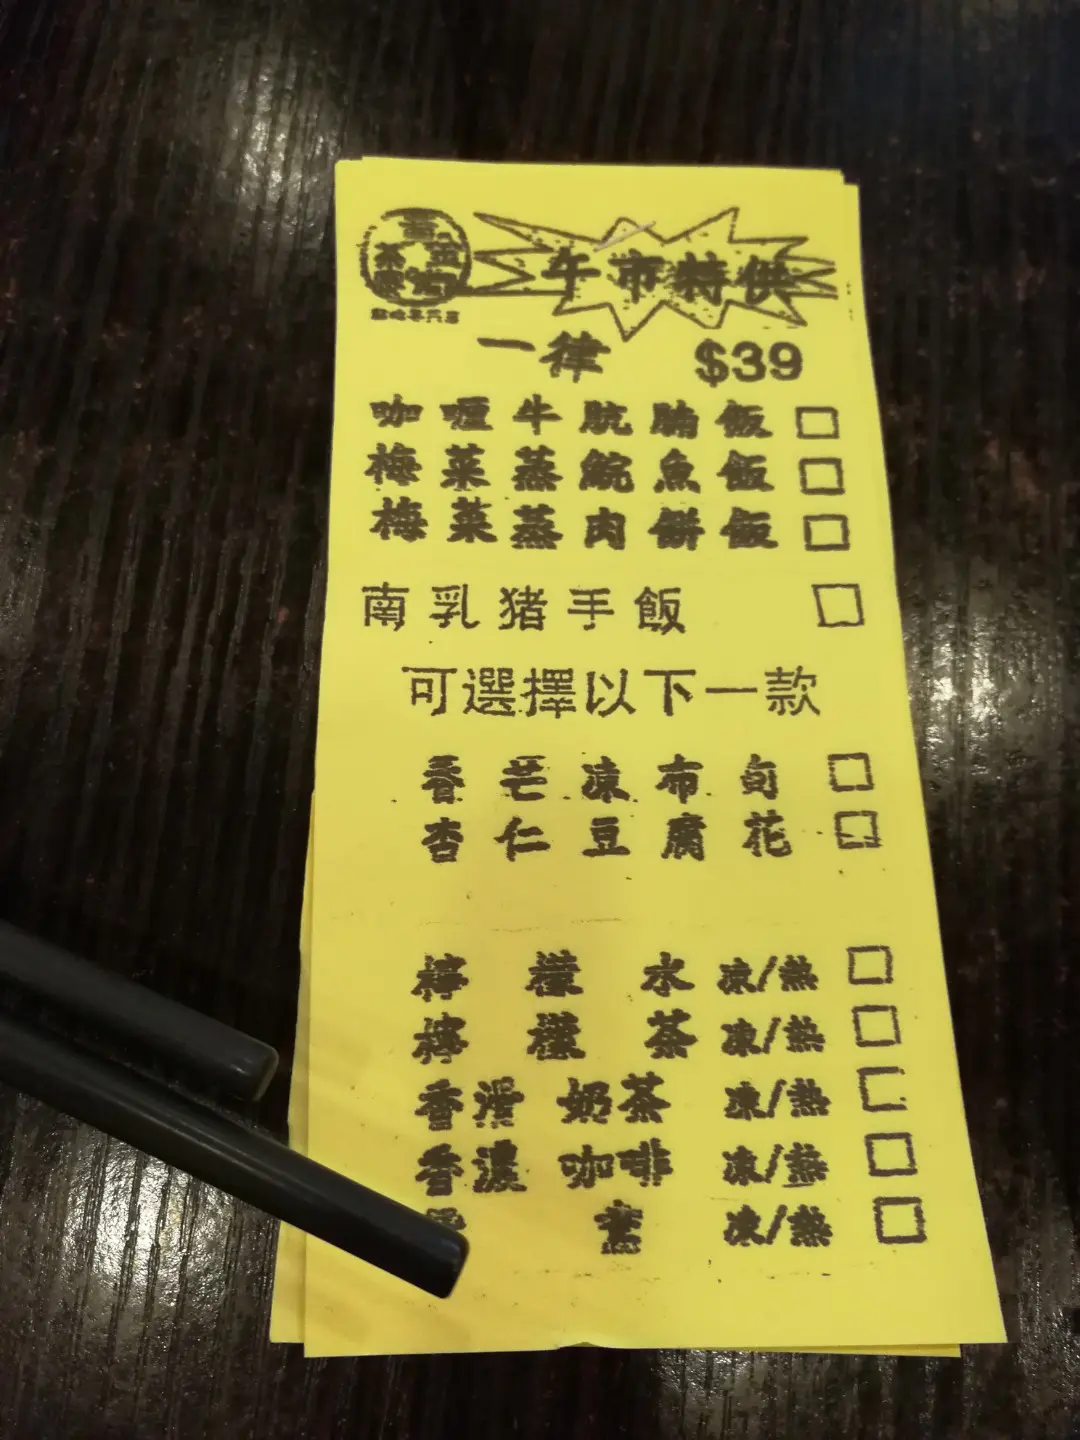 午市特供
一律 $39
咖喱牛肮腩飯
梅菜蒸鯇魚飯
梅菜蒸肉餅飯
南乳猪手飯
可選擇以下一款
香芒凍布甸
杏仁豆腐花
檸檬水 凍/熱
檸檬茶 凍/熱
香滑奶茶 凍/熱
香濃咖啡 凍/熱
凍/熱